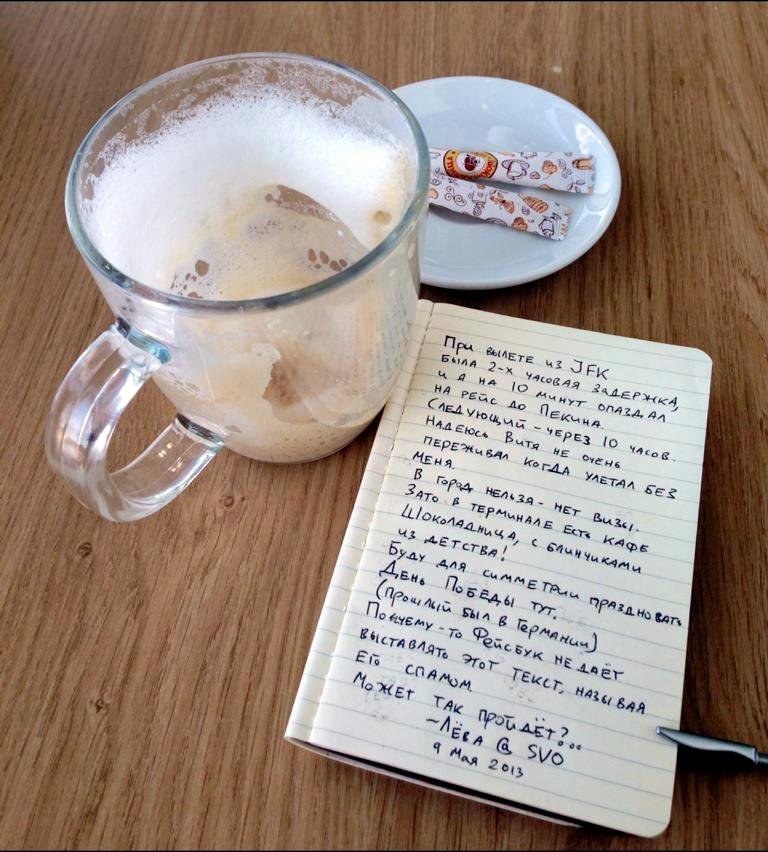 При вылете из JFK
была 2-х часовая задержка,
и я на 10 минут опаздал
на рейс до Пекина.
Следующий - через 10 часов.
Надеюсь Витя не очень
переживал когда улетал без
меня.
В город нельзя - нет визы.
Зато в терминале есть кафе
Шоколадница, с блинчиками
из детства!
Буду для симметрии праздновать
День Победы тут.
(прошлый был в Германии)
Почему-то Фейсбук не даёт
выставлять этот текст, называя
его спамом.
Может так пройдёт?
~Лёва @ SVO
9 мая 2013